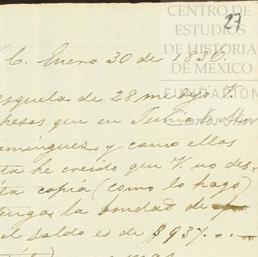 CENTRO DE
ESTUDIOS
DE HISTORIA
DE MÉXICO
27
C. Enero 30 de 1836.
esquela de 28 me dijo V.
pesos que en Junio
omínguez, y como ellos
ta he creido que V. no des-
ta copia (como lo hago)
tenga la bondad de
el saldo es de $937..